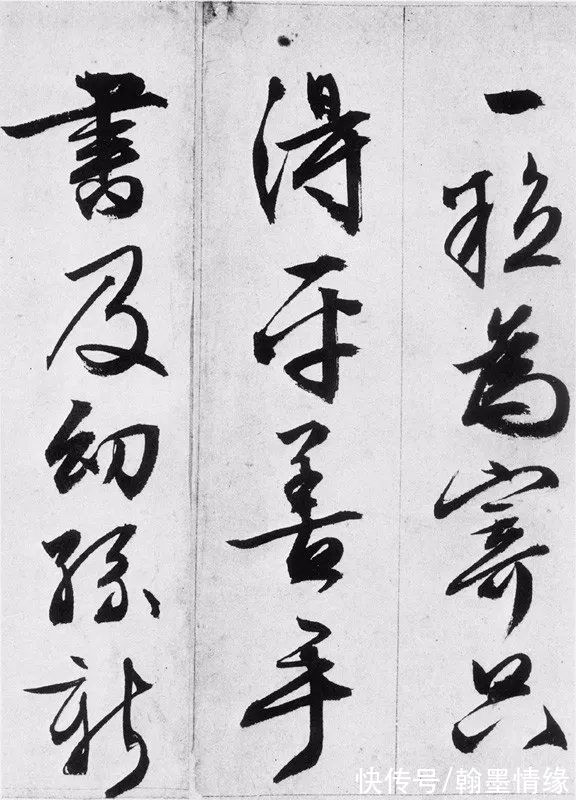 一為寄只
得平善手
書及幼孫新
快传号/翰墨情缘